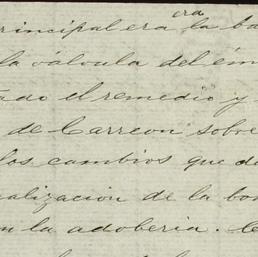 era
rincipal era la ba
la válvula del ém
ado el remedio y
de Carreon sobre
los cambios que de
alización de la bo
n la adoberia.